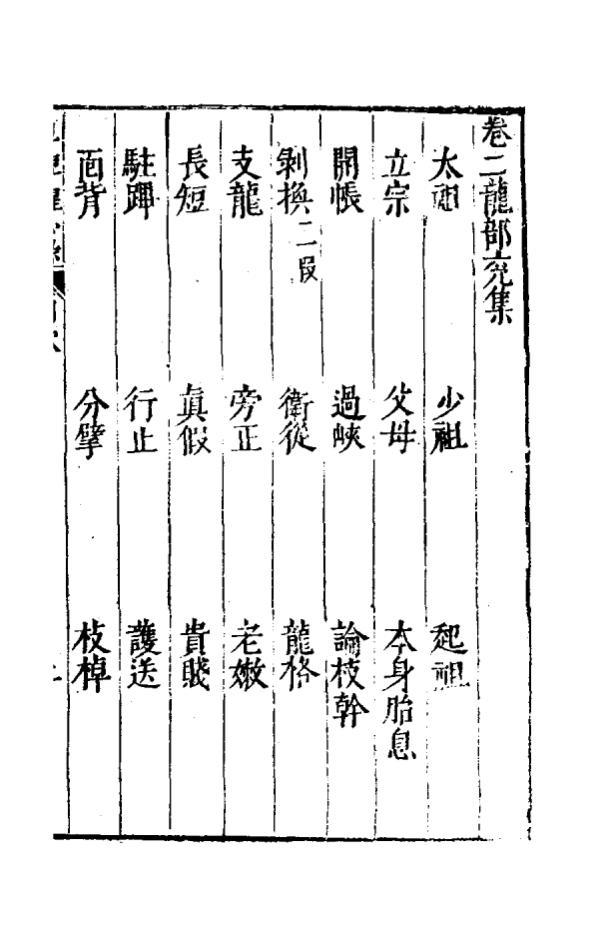 卷二龍部亢集
太祖 少祖 起祖
立宗 父母 本身胎息
開帳 過峽 論枝幹
剝換二段 衛從 龍格
支龍 旁正 老嫩
長短 眞假 貴賤
駐蹕 行止 護送
面背 分擘 枝棹